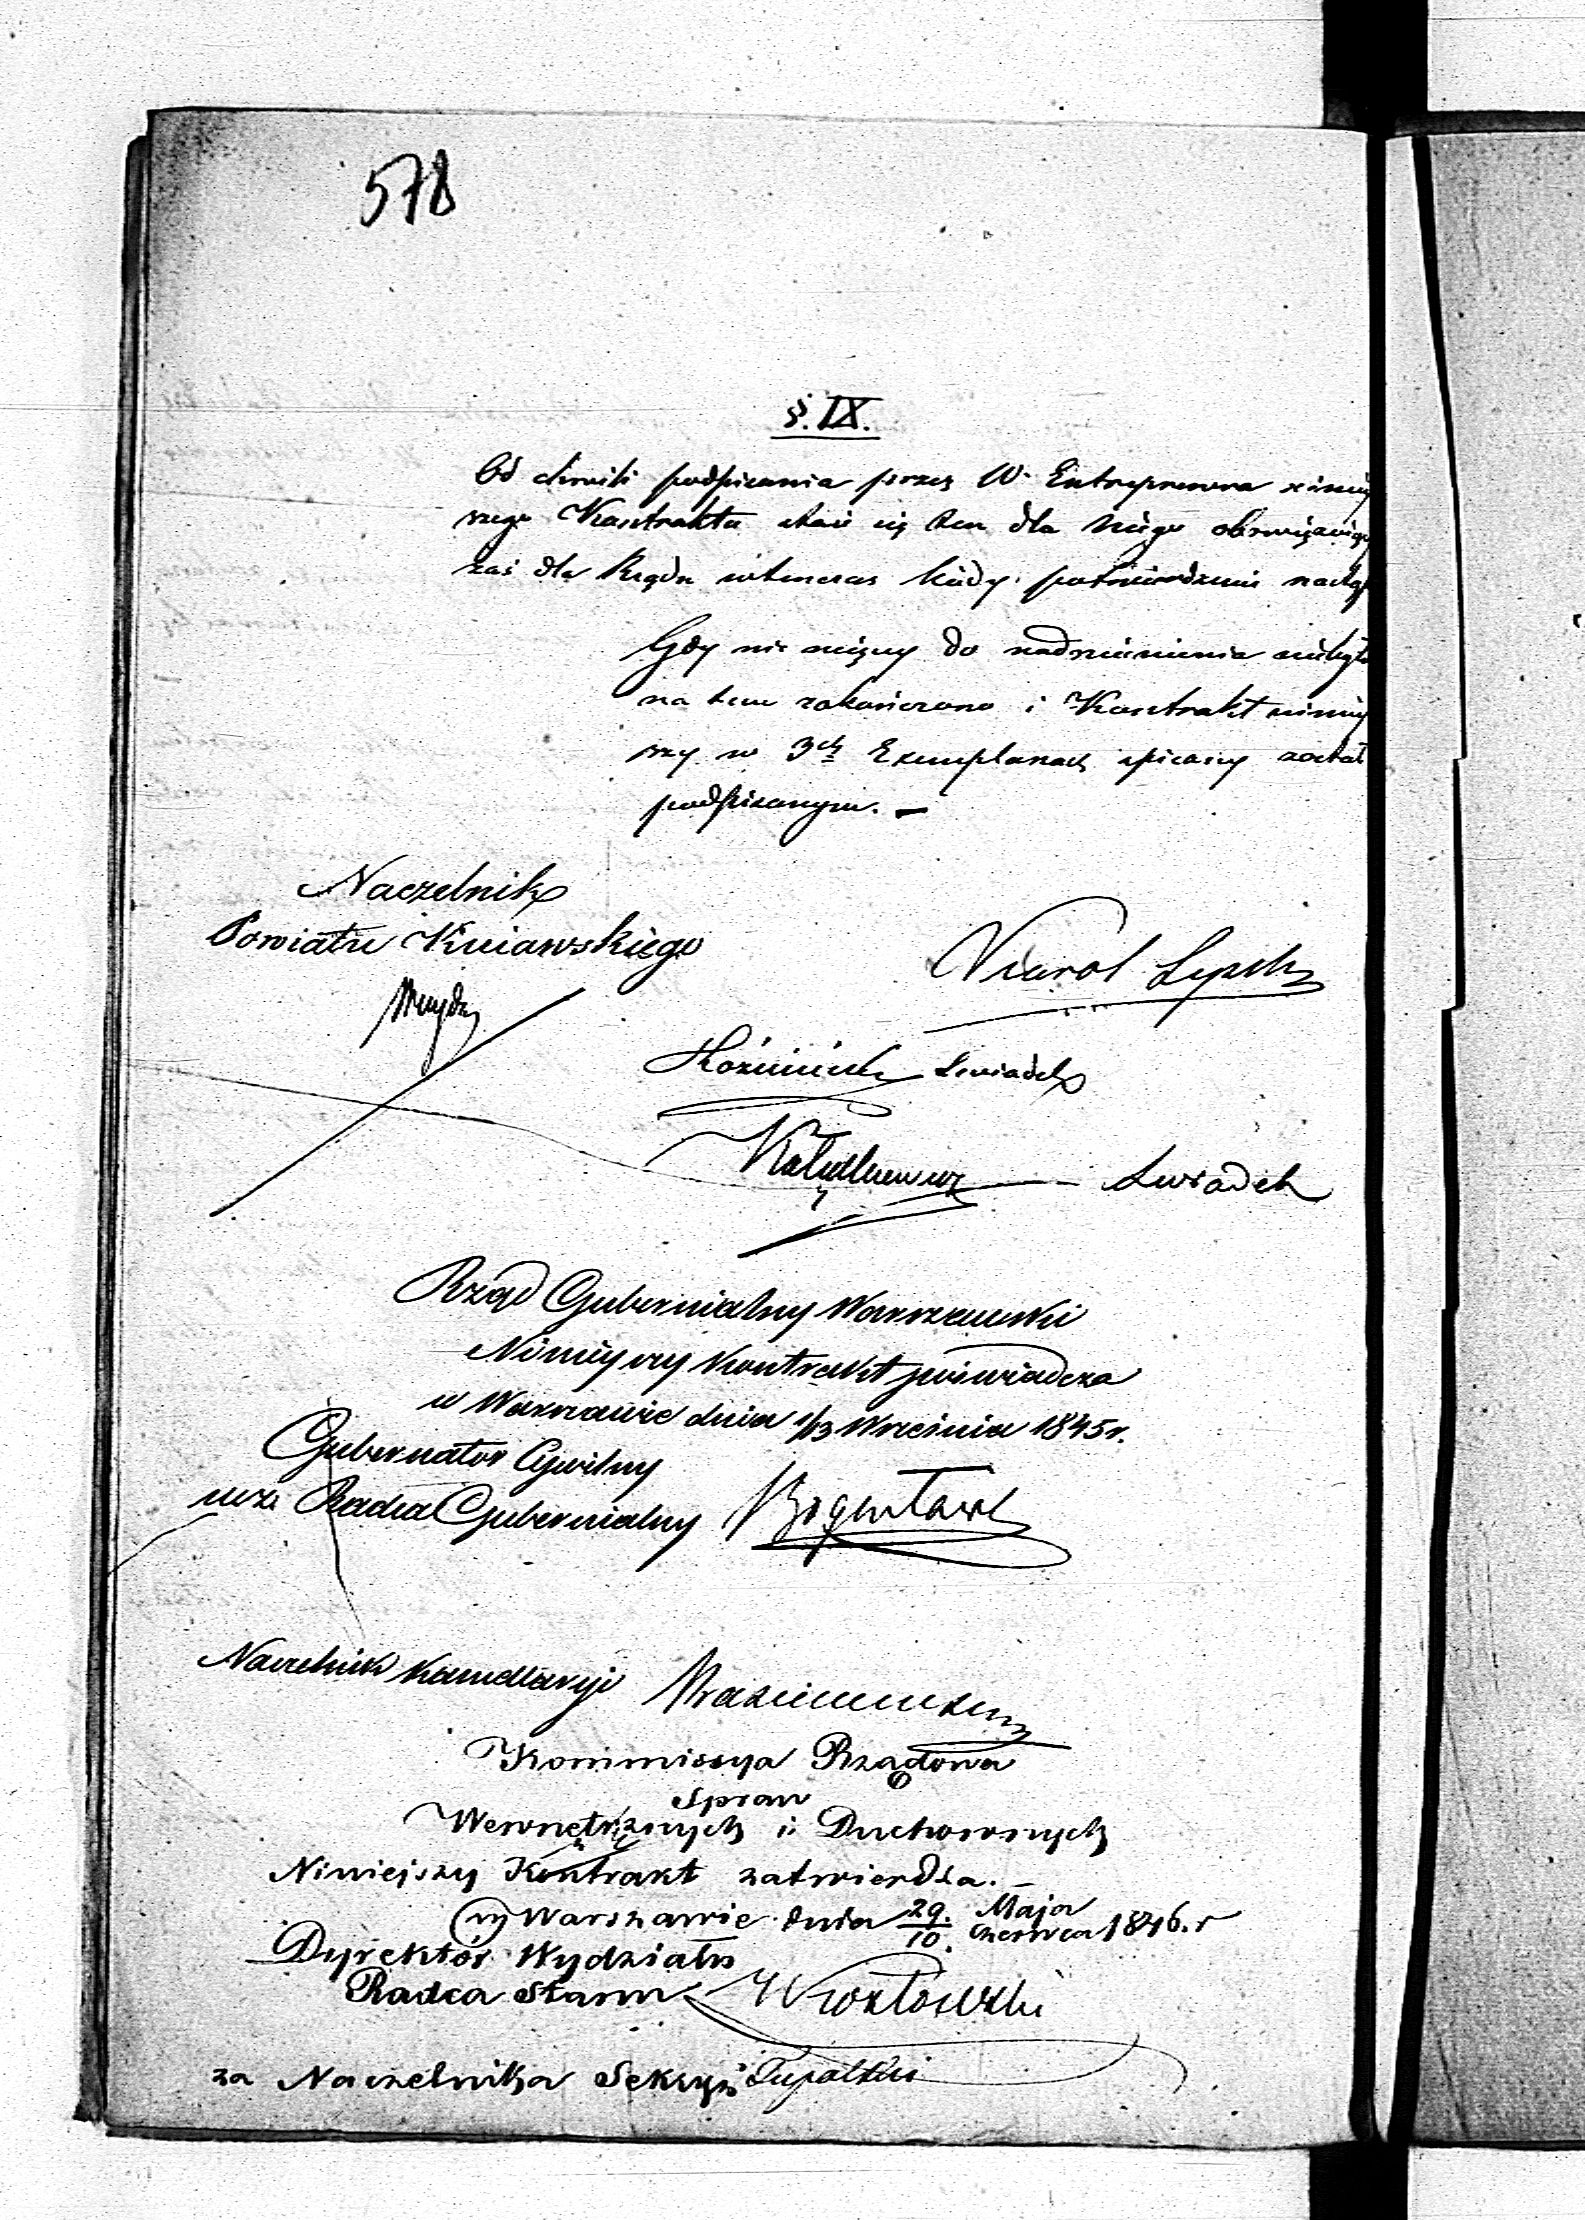 578
§. IX.
Od chwili podpisania przez W. Entreprenera niniej
szego Kontraktu staie się ten dla Niego obowiązuiący
zaś dla Rządu wtenczas kiedy potwierdzenie nastąpi
Gdy nic więcey do nadmienienia niebyło
na tem zakończono i Kontrakt niniey
szy w 3ch Exemplarzach spisany został
podpisanym. —
Naczelnik
Powiatu Kuiawskiego
Karol
Świadek
Świadek
Rząd Gubernialny Warszawski
Ninieyszy Kontrakt poświadcza
w Warszawie dnia 1/13 Września 1845 r.
Gubernator Cywilny
wz. Radca Gubernialny
Naczelnik Kancellaryi
Kommissya Rządowa
Spraw
Wewnętrznych i Duchownych
Niniejszy Kontrakt zatwierdza. —
w Warszawie dnia 29. Maja / 10. Czerwca 1846. r
Dyrektór Wydziału
Radca Stanu Kozłowski
za Naczelnika Sekcyi Tupalski